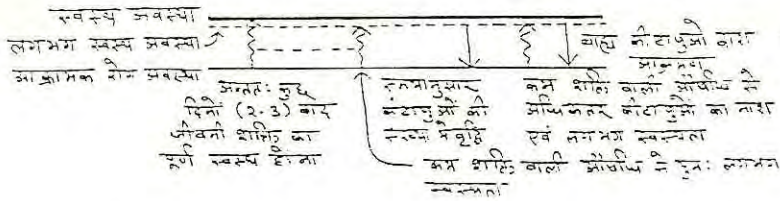 स्वस्थ अवस्था
लगभग स्वस्थ अवस्था
आक्रामक रोग अवस्था
बाह्य कीटाणुओं द्वारा
आक्रमण
अन्ततः कुछ
दिनों (2-3) बाद
जीवनी शक्ति का
पूर्ण स्वस्थ होना
कीटाणुओं की
संख्या में वृद्धि
कम शक्ति वाली औषधि से
अधिकतर कीटाणुओं का नाश
एवं लगभग स्वस्थता
कम शक्ति वाली औषधि से पुनः लगभग
स्वस्थता